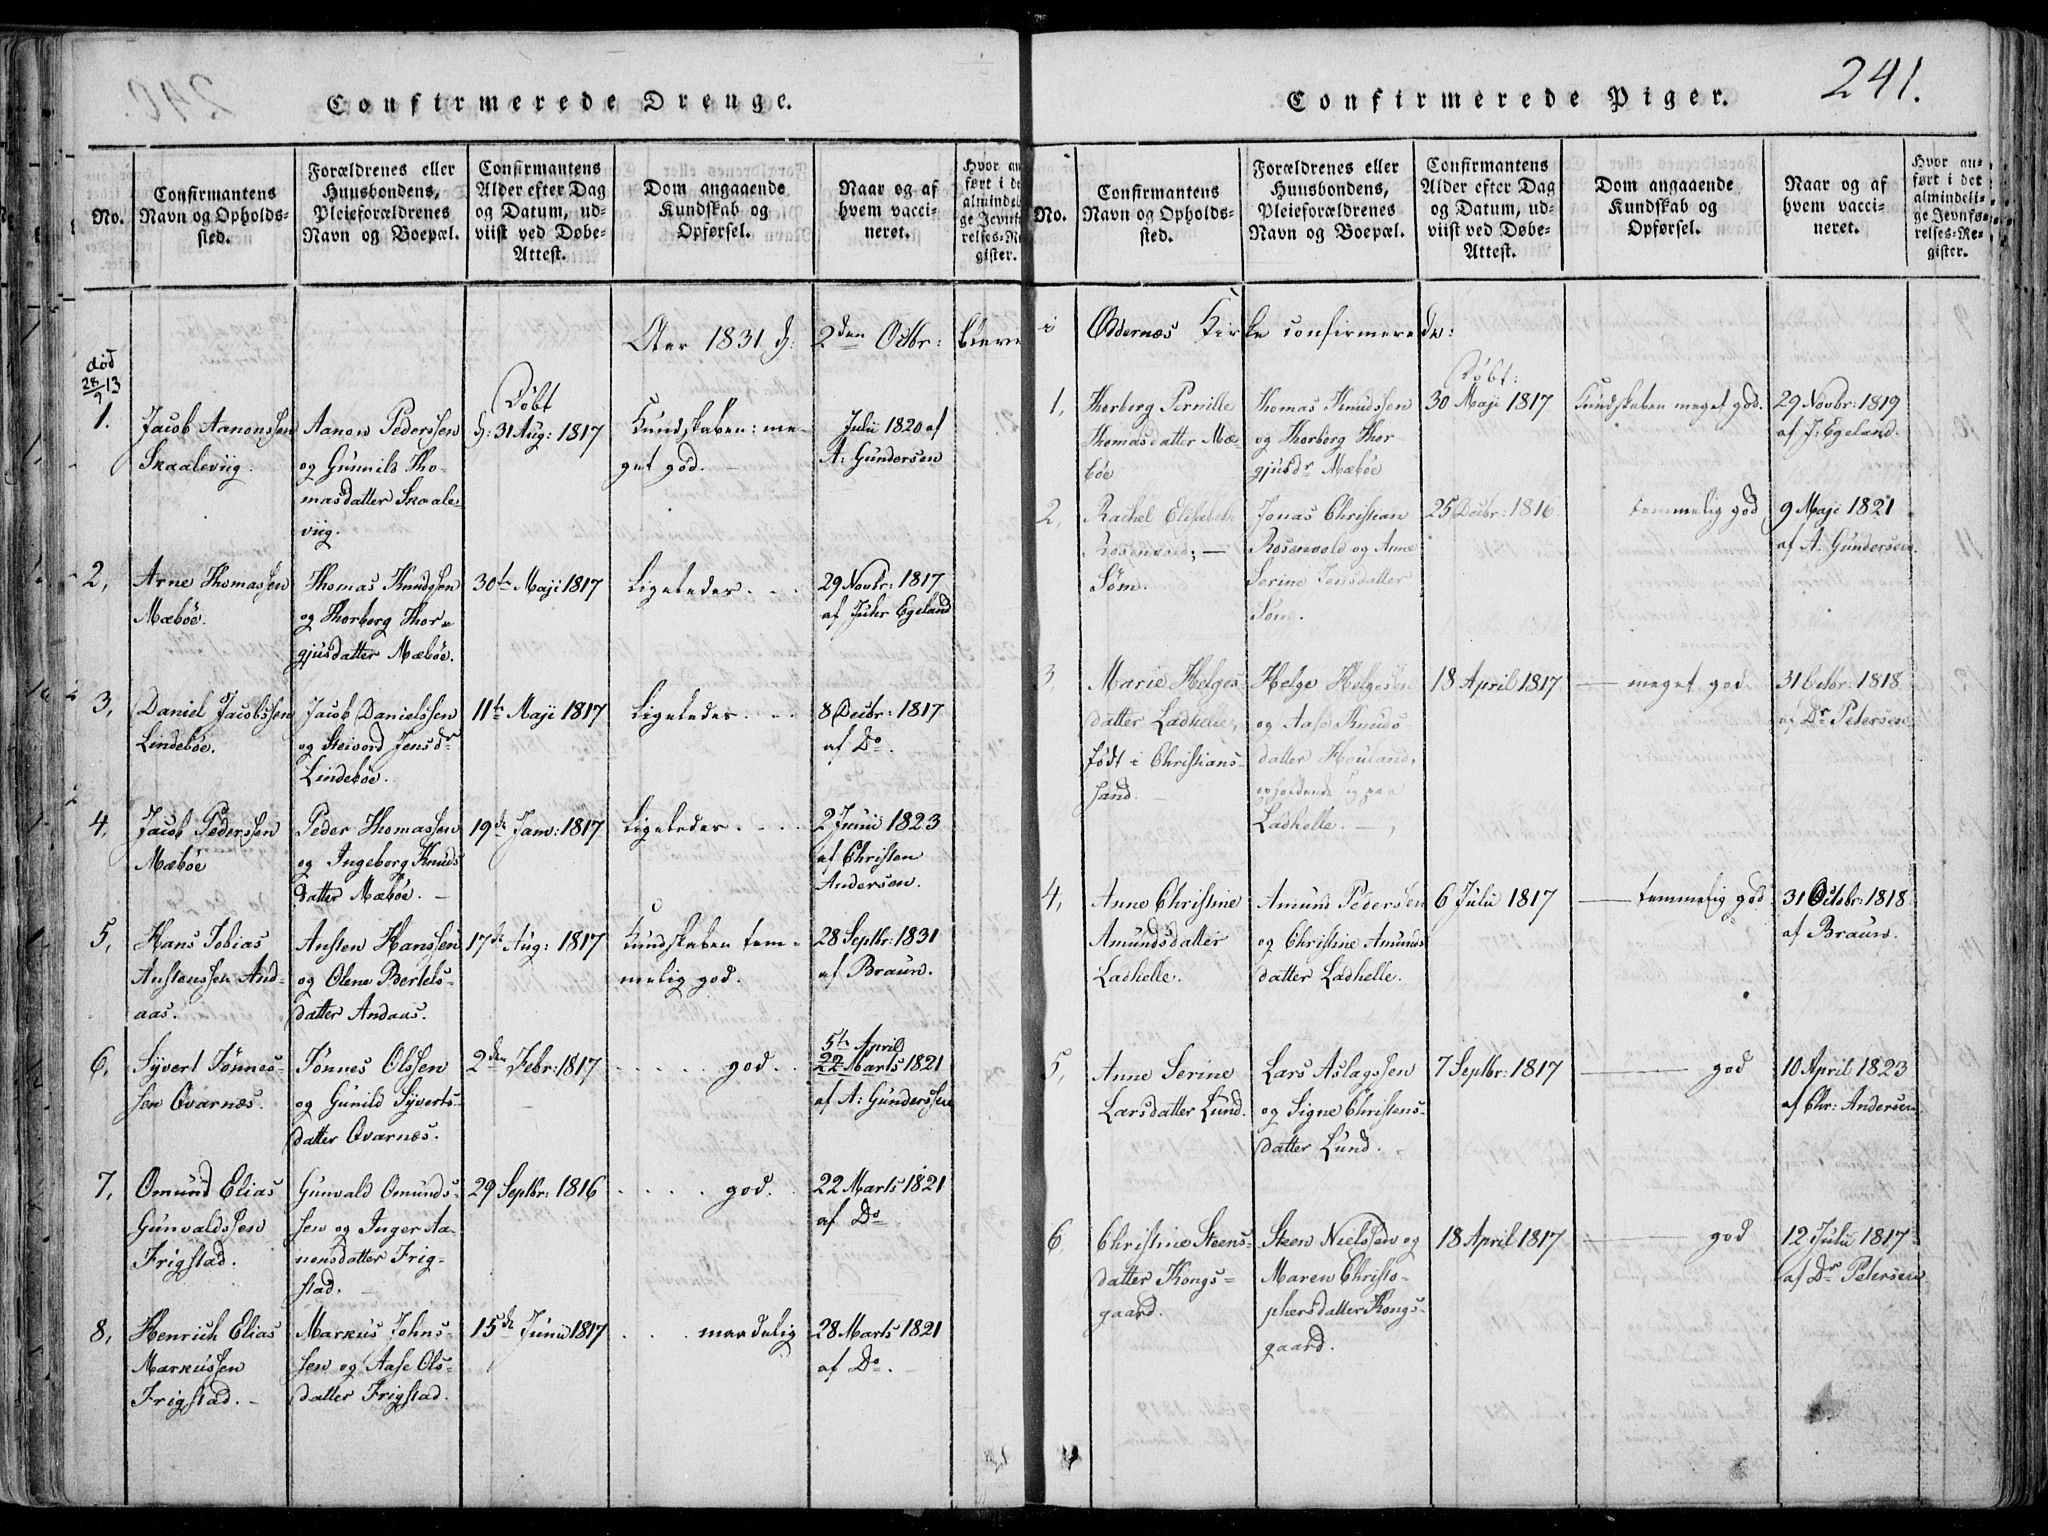 Confirmerede Drenge.
No.
Confirmantens
Navn og Opholds-
sted.
Forældrenes eller
Huusbondens,
Pleieforældrenes
Navn og Boepæl.
Confirmantens
Alder efter Dag
og Datum, ud-
viist ved Døbe-
Attest.
Dom angaaende
Kundskab og
Opførsel.
Naar og af
hvem vacci-
neret.
Hvor an
ført i de
almindel
ge Jevnfø
relses-Re
gister.
Aar 1831 d: 2den Octbr: bleve
død
28/9 13
1.
Jacob Aanonssen
Skaaleviig.
Aanon Pederssen
og Gunnild Tho-
masdatter Skaale-
viig.
Döbt
d: 31 Aug: 1817
Kundskaben: me-
get god.
Julii 1820 af
A: Gundersen
2,
Arne Thomassen
Mæbøe.
Thomas Knudssen
og Thorborg Thor-
gjusdatter Mæbøe.
30te Maji 1817
Ligeledes . . .
29 Novbr: 1817
af Juhr Egeland
3,
Daniel Jacobssen
Lindebøe.
Jacob Danielssen
og Steivord Jensdr
Lindebøe.
11te Maji 1817
Ligeledes . . .
8 Decbr: 1817
af Do.
4,
Jacob Pederssen
Mæbøe
Peder Thomassen
og Ingeborg Knuds
datter Mæbøe. –
19de Janv: 1817
Ligeledes . . .
2 Junii 1823
af Christen
Andersen.
5,
Hans Tobias
Anstenssen And-
aas.
Ansten Hanssen
og Olene Bertels-
datter Andaas.
17de Aug: 1817
Kundskaben tem-
melig god.
28 Septbr: 1831
af Braun.
6,
Syvert Tønnes-
sen Qvarnæs.
Tønnes Olssen
og Gunild Syverts-
datter Qvarnæs.
2den Febr: 1817
. . . . . god.
5te April
22 Marts 1821
af A: Gunderssen
7,
Omund Elias
Gunvaldssen
Frigstad.
Gunvald Omunds-
sen og Inger Aa-
nensdatter Frig-
stad.
29 Septbr: 1816
. . . . . god.
22 Marts 1821
af Do
8,
Henrich Elias
Markussen
Frigstad. –
Markus Johns-
sen og Aase Ols-
datter Frigstad.
15de Junii 1817
. . . maadelig
28 Marts 1821
af Do.
Confirmerede Piger.
241.
No.
Confirmantens
Navn og Opholds-
sted.
Forældrenes eller
Huusbondens,
Pleieforældrenes
Navn og Boepæl.
Confirmantens
Alder efter Dag
og Datum, ud-
viist ved Døbe-
Attest.
Dom angaaende
Kundskab og
Opførsel.
Naar og af
hvem vacci-
neret.
Hvor an-
ført i det
almindeli-
ge Jevnfø-
relses-Re-
gister.
i Oddernæs Kirke confirmerede:
1,
Thorborg Pernille
Thomasdatter Mæ-
bøe
Thomas Knudssen
og Thorborg Thor-
gjusdr Mæbøe
Døbt:
30 Maji 1817
Kundskaben meget god.
29 Novbr: 1819
af J: Egeland.
2,
Rachel Elisabeth
Rosenvold; –
Söm.
Jonas Christian
Rosenvold og Anne
Serine Jensdatter
Söm.
25 Decbr: 1816
temmelig god
9 Maji 1821
af A: Gundersen.
3,
Marie Helges-
datter Ladhelle,
født i Christians-
sand. –
Helge Helgesen
og Aase Knuds-
datter Houland,
opholdende sig paa
Ladhelle. –,
18 April 1817
– meget god
31 Octbr: 1818.
af Dr Petersen
4,
Anne Christine
Amundsdatter
Ladhelle.
Amund Pedersen
og Christine Amunds
datter Ladhelle.
6 Julii 1817
– temmelig god
31 Octobr: 1818
af Braun.
5,
Anne Serine
Larsdatter Lund.
Lars Aslagssen
og Signe Christens-
datter Lund. –
7 Septbr: 1817
– god
10 April 1823
af Chr: Andersen
6,
Christine Steens-
datter Kongs-
gaard.
Steen Nielssen og
Maren Christo-
phersdatter Kongs-
gaard.
18 April 1817
– god
12 Julii 1817
af Dr Petersen